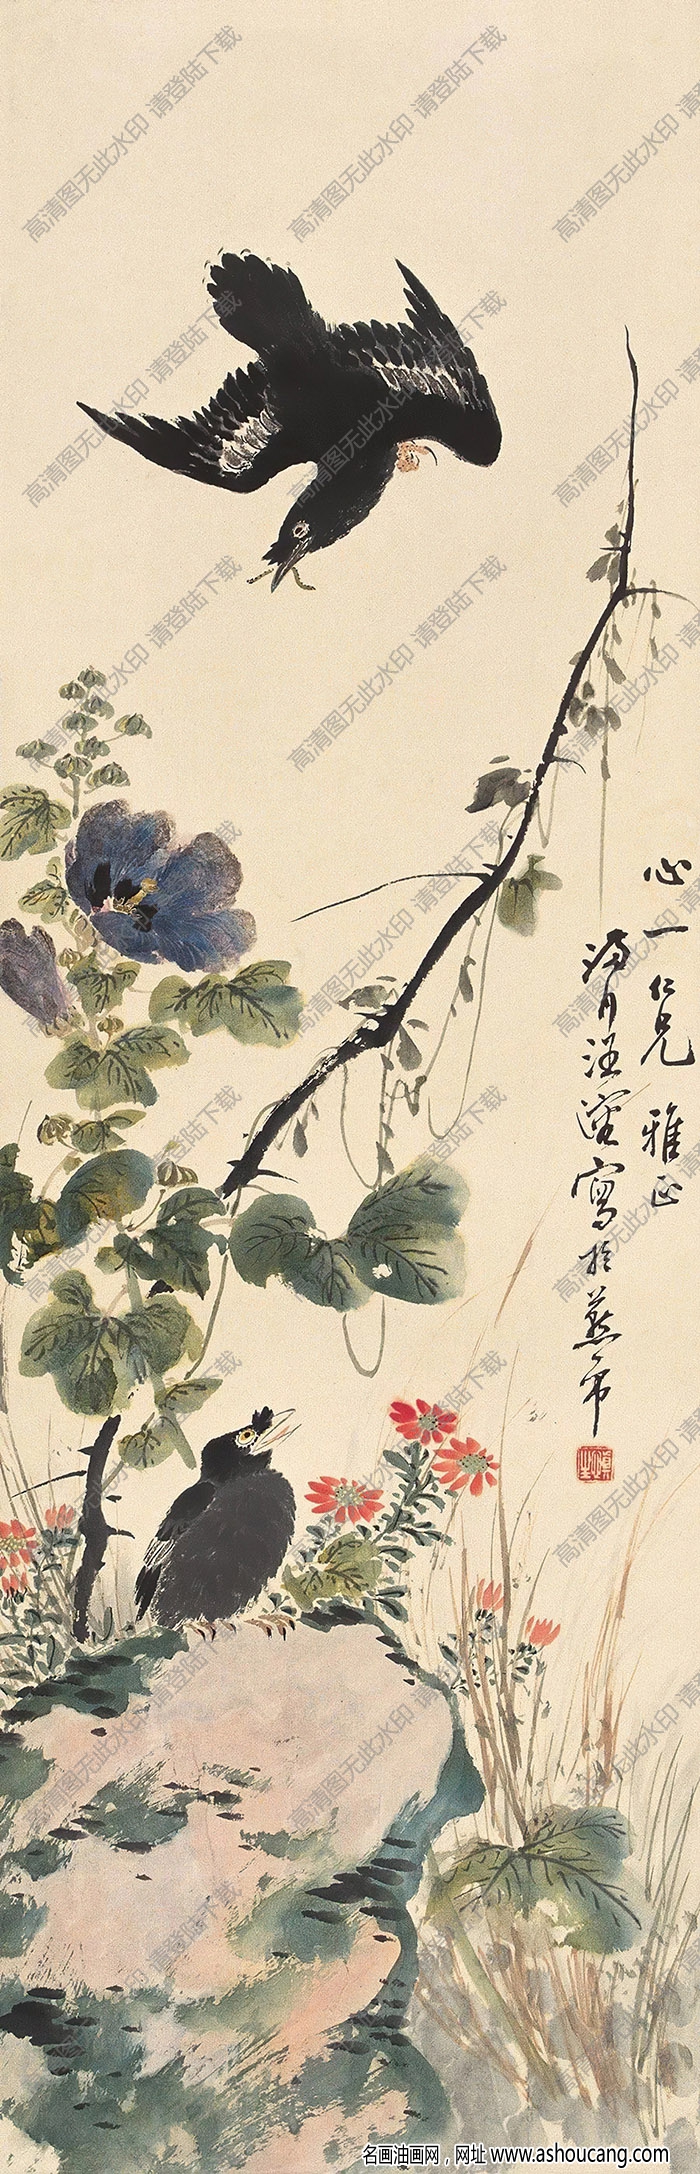 高清图无此水印 请登陆下载
心一仁兄 雅正
汪
写於燕市
慎生
名画油画网，网址 www.ashoucang.com